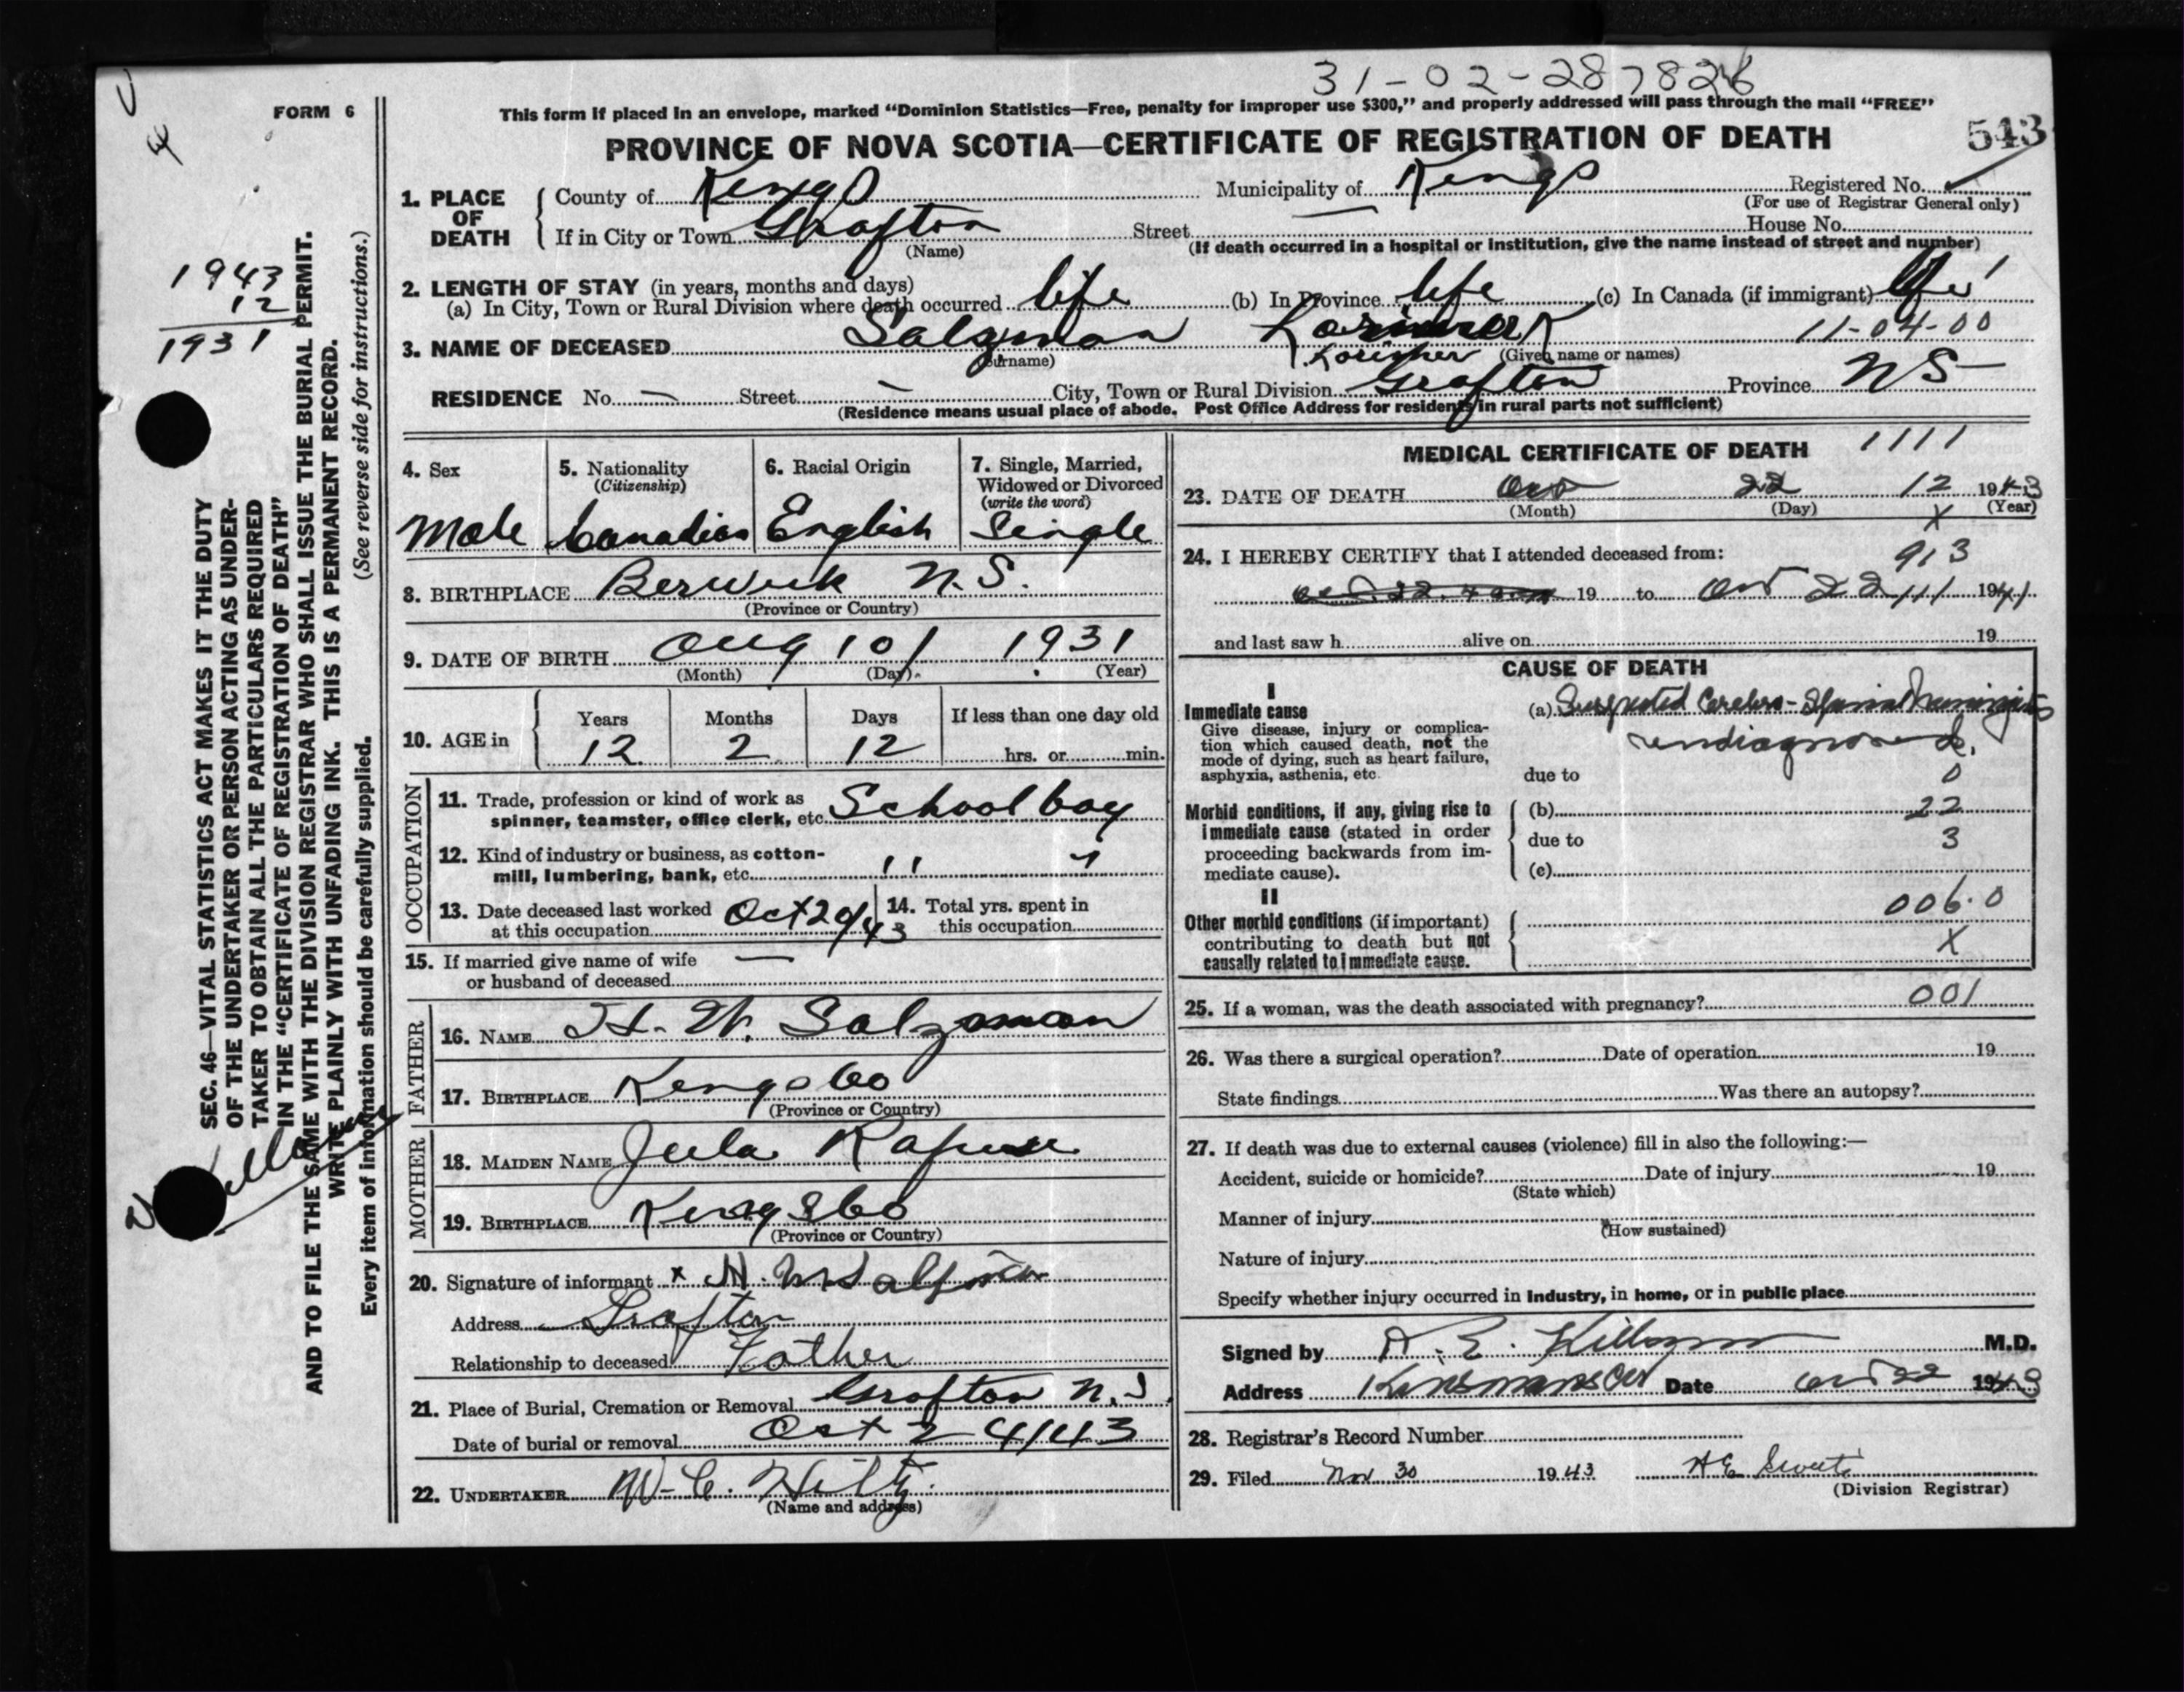 31-02-287826
FORM 6
This form if placed in an envelope, marked "Dominion Statistics—Free, penalty for improper use $300," and properly addressed will pass through the mail "FREE"
PROVINCE OF NOVA SCOTIA—CERTIFICATE OF REGISTRATION OF DEATH
543
1. PLACE OF DEATH
County of Kings Municipality of Kings Registered No.
(For use of Registrar General only)
If in City or Town Grafton Street House No.
(Name) (If death occurred in a hospital or institution, give the name instead of street and number)
2. LENGTH OF STAY (in years, months and days)
(a) In City, Town or Rural Division where death occurred life (b) In Province life (c) In Canada (if immigrant) life
11-04-00
3. NAME OF DECEASED Salzman Lorimer
(Surname) (Given name or names)
RESIDENCE No. — Street — City, Town or Rural Division Grafton Province N S
(Residence means usual place of abode. Post Office Address for residents in rural parts not sufficient)
1943
12
1931
SEC. 46—VITAL STATISTICS ACT MAKES IT THE DUTY
OF THE UNDERTAKER OR PERSON ACTING AS UNDER-
TAKER TO OBTAIN ALL THE PARTICULARS REQUIRED
IN THE "CERTIFICATE OF REGISTRATION OF DEATH"
AND TO FILE THE SAME WITH THE DIVISION REGISTRAR WHO SHALL ISSUE THE BURIAL PERMIT.
WRITE PLAINLY WITH UNFADING INK. THIS IS A PERMANENT RECORD.
Every item of information should be carefully supplied. (See reverse side for instructions.)
4. Sex
Male
5. Nationality
(Citizenship)
Canadian
6. Racial Origin
English
7. Single, Married,
Widowed or Divorced
(write the word)
Single
8. BIRTHPLACE Berwick N.S.
(Province or Country)
9. DATE OF BIRTH Aug 10 1931
(Month) (Day) (Year)
10. AGE in
Years Months Days If less than one day old
12 2 12 hrs. or min.
OCCUPATION
11. Trade, profession or kind of work as
spinner, teamster, office clerk, etc. School boy
12. Kind of industry or business, as cotton-
mill, lumbering, bank, etc. " "
13. Date deceased last worked
at this occupation Oct 20/43
14. Total yrs. spent in
this occupation
15. If married give name of wife —
or husband of deceased
FATHER
16. NAME H. W. Salzman
17. BIRTHPLACE Kings Co
(Province or Country)
MOTHER
18. MAIDEN NAME Jula Rafuse
19. BIRTHPLACE Kings Co
(Province or Country)
20. Signature of informant x H. W Salzman
Address Grafton
Relationship to deceased Father
21. Place of Burial, Cremation or Removal Grafton N.S.
Date of burial or removal Oct 24/43
22. UNDERTAKER W. C. Hiltz
(Name and address)
MEDICAL CERTIFICATE OF DEATH 1111
23. DATE OF DEATH Oct 22 12 1943
(Month) (Day) (Year)
X
24. I HEREBY CERTIFY that I attended deceased from: 913
19 to Oct 22 19
and last saw h alive on 19
CAUSE OF DEATH
I
Immediate cause
Give disease, injury or complica-
tion which caused death, not the
mode of dying, such as heart failure,
asphyxia, asthenia, etc.
(a) Suspected Cerebro-Spinal Meningitis
undiagnosed.
due to 0
Morbid conditions, if any, giving rise to
immediate cause (stated in order
proceeding backwards from im-
mediate cause).
(b) 22
due to 3
(c)
II
Other morbid conditions (if important)
contributing to death but not
causally related to immediate cause.
006.0
X
25. If a woman, was the death associated with pregnancy? 001
26. Was there a surgical operation? Date of operation 19
State findings Was there an autopsy?
27. If death was due to external causes (violence) fill in also the following:—
Accident, suicide or homicide? Date of injury 19
(State which)
Manner of injury
(How sustained)
Nature of injury
Specify whether injury occurred in Industry, in home, or in public place
Signed by M.D.
Address Date Oct 22 1943
28. Registrar's Record Number
29. Filed Nov 30 1943
(Division Registrar)